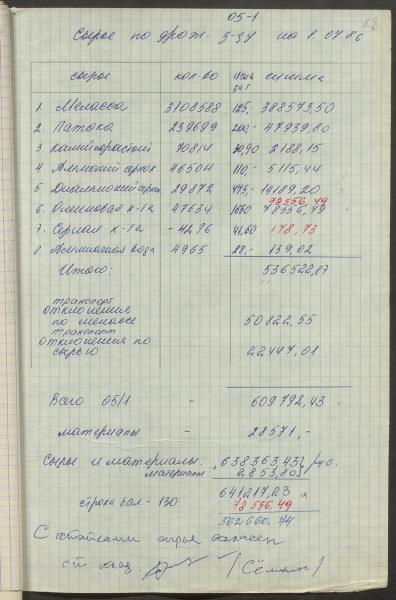 05-1
Сырье по дрож. з-ду на 1.07.86
сырье кол-во цена за т сумма
1. Меласса 3108588 125,- 388573,50
2. Патока 239699 200,- 47939,80
3 Калий хлористый 70814 30,90 2188,15
4. Аммоний сернок. 46504 110,- 5115,44
5 Диаммоний фосф 29872 475,- 14189,20
78556,49
6. Олеиновая к-та 47634 1650 78556,49
7. Серная к-та -4296 41,60 178,73
8 Аммиачная вода 4965 28,- 139,02
Итого: 536522,87
транспорт
отклонения
по мелассе 50822,55
транспорт
отклонения по
сырью 22447,01
Всего 05/1 - 609792,43
материалы - 28571,-
Сырье и материалы: 638363,43
материалы 2853,80
641217,23
строка бал. - 130 78556,49
562660,74
С остатками сырья согласен
ст. клад. /Сёмин/